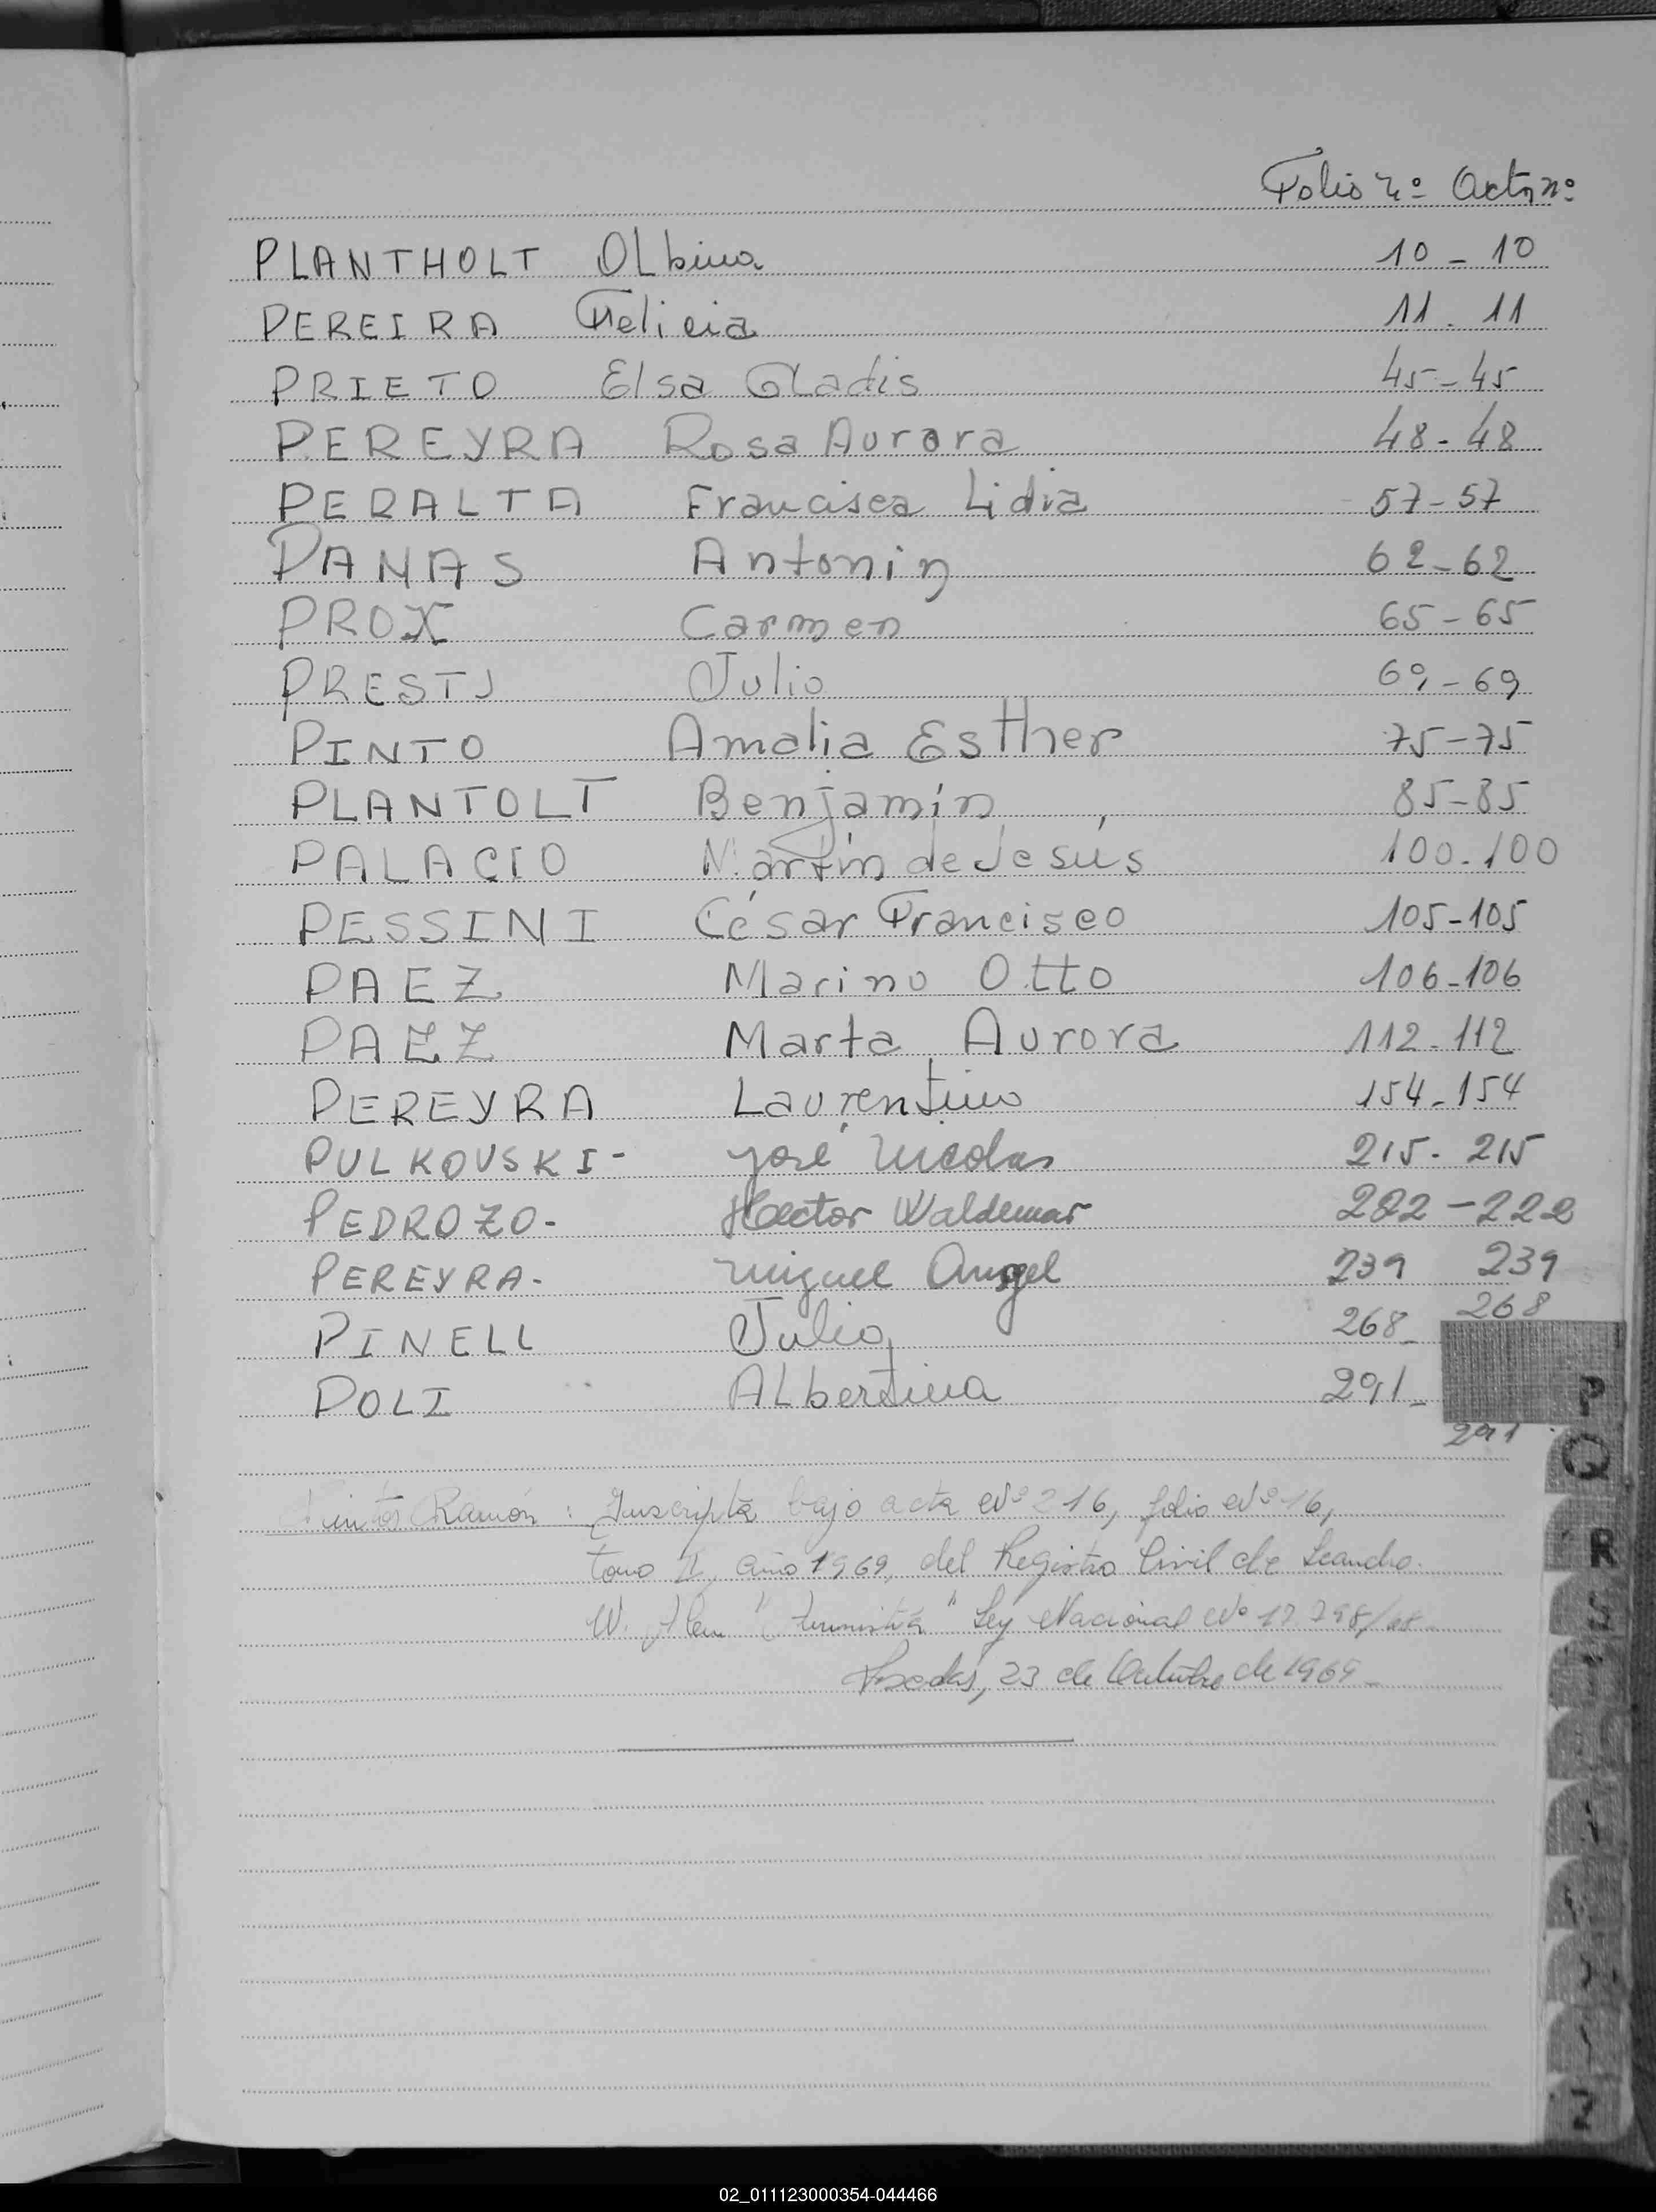 Folio nº Acta nº
PLANTHOLT OLbina 10 - 10
PEREIRA Felicia 11 . 11
PRIETO Elsa Gladis 45 - 45
PEREYRA Rosa Aurora 48 - 48
PERALTA Francisca Lidia 57 - 57
PANAS Antonin 62 - 62
PROX Carmen 65 - 65
PRESTI Julio 69 - 69
PINTO Amalia Esther 75 - 75
PLANTOLT Benjamín 85 - 85
PALACIO Martín de Jesús 100 - 100
PESSINI César Francisco 105 - 105
PAEZ Marino Otto 106 - 106
PAEZ Marta Aurora 112 - 112
PEREYRA Laurentino 154 - 154
PULKOVSKI - José Nicolas 215 - 215
PEDROZO - Hector Waldemar 222 - 222
PEREYRA - Miguel Angel 239 239
PINELL Julio 268 - 268
POLI ALbertina 291 - 291
Ramón : Inscripta bajo acta Nº 216, folio Nº 16,
tomo II, año 1969, del Registro Civil de Leandro
N. Alem " Amnistía " Ley Nacional Nº 17.798/68
Posadas, 23 de Octubre de 1969 -
P
Q
R
S
Z
02_011123000354-044466